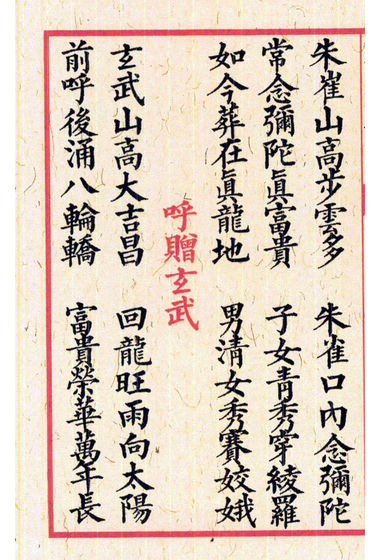 朱崔山高步雲多 朱雀口內念彌陀
常念彌陀眞富貴 子女青秀穿綾羅
如今葬在眞龍地 男清女秀賽姣娥
呼贈玄武
玄武山高大吉昌 回龍旺雨向太陽
前呼後涌八輪轎 富貴榮華萬年長